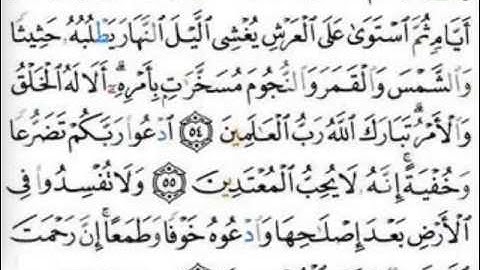 أَيَّامٍ ثُمَّ ٱسْتَوَىٰ عَلَى ٱلْعَرْشِ يُغْشِى ٱلَّيْلَ ٱلنَّهَارَ يَطْلُبُهُۥ حَثِيثًا
وَٱلشَّمْسَ وَٱلْقَمَرَ وَٱلنُّجُومَ مُسَخَّرَٰتٍۭ بِأَمْرِهِۦٓ ۗ أَلَا لَهُ ٱلْخَلْقُ
وَٱلْأَمْرُ ۗ تَبَارَكَ ٱللَّهُ رَبُّ ٱلْعَٰلَمِينَ ٥٤ ٱدْعُوا۟ رَبَّكُمْ تَضَرُّعًا
وَخُفْيَةً ۚ إِنَّهُۥ لَا يُحِبُّ ٱلْمُعْتَدِينَ ٥٥ وَلَا تُفْسِدُوا۟ فِى
ٱلْأَرْضِ بَعْدَ إِصْلَٰحِهَا وَٱدْعُوهُ خَوْفًا وَطَمَعًا ۚ إِنَّ رَحْمَتَ